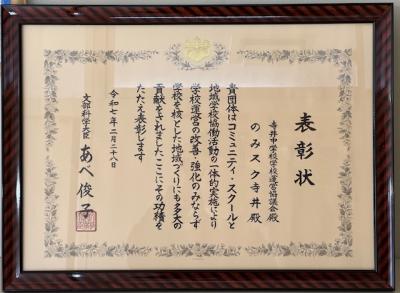 表彰状
寺井中学校学校運営協議会殿
のみスク寺井殿
貴団体はコミュニティ・スクールと
地域学校協働活動の一体的実施により
学校運営の改善・強化のみならず
学校を核とした地域づくりにも多大の
貢献をされましたここにその功績を
たたえ表彰します
令和七年二月二十八日
文部科学大臣 あべ俊子